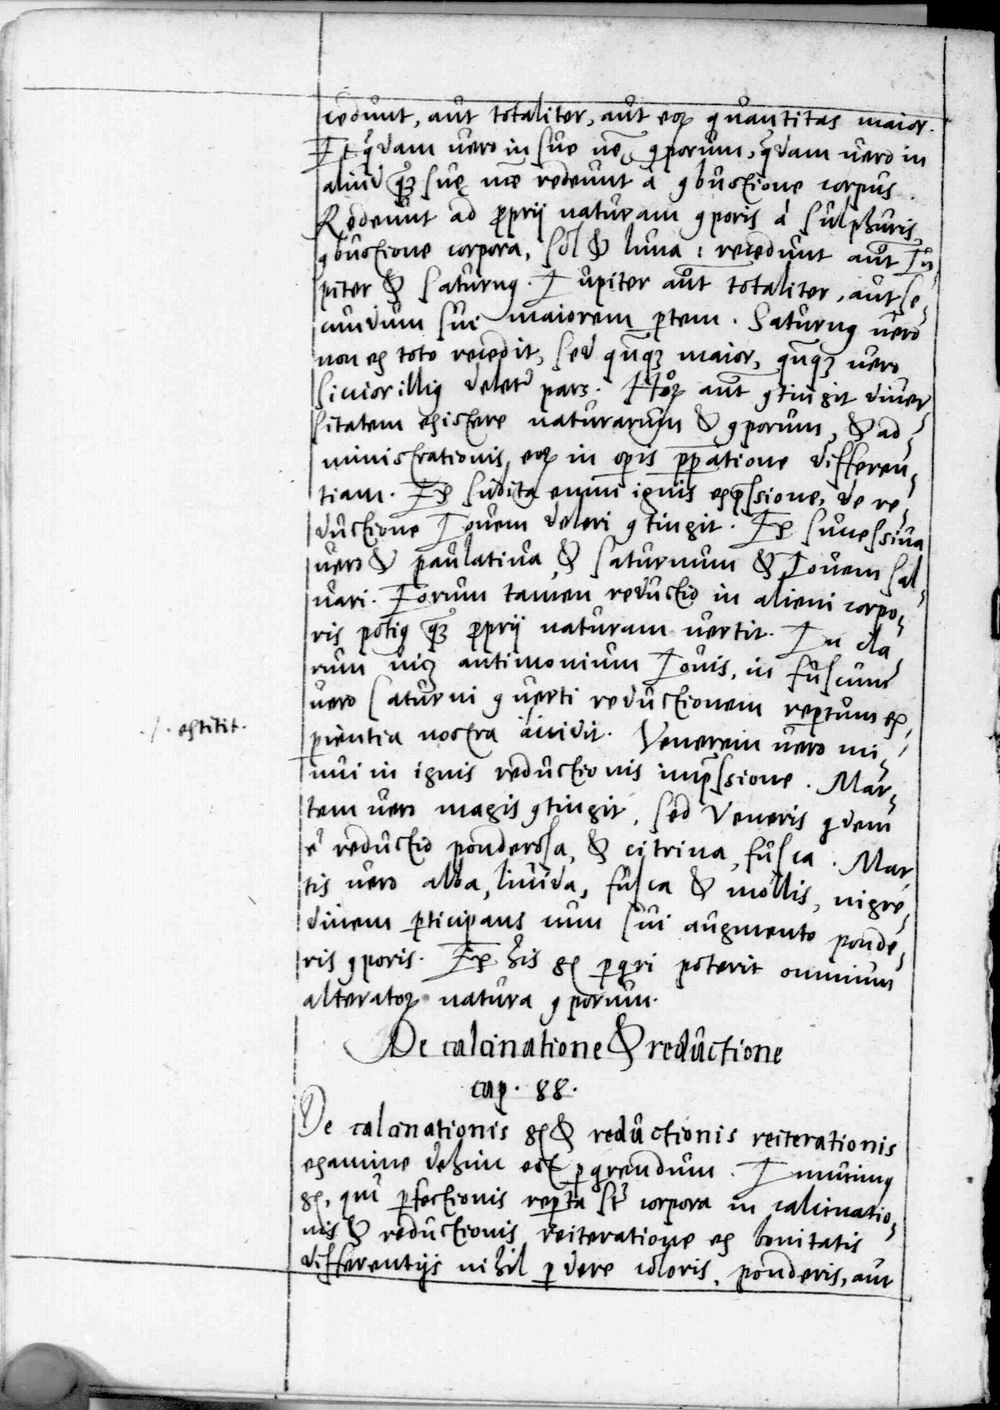 cedunt, aut totaliter, aut eoꝝ quantitas maior.
Et q̃dam vero in sue nẽ ꝯporum, q̃dam vero in
aliud quã suę nae redeunt a ꝯbustione corpus.
Redeunt ad proprij naturam ꝯporis á sulphuris
ꝯbustione corpora, Sol & luna: recedunt aũt Iu
piter & Saturnꝰ. Iupiter aũt totaliter, aut se-
cundum sui maiorem ꝑtem. Saturnꝰ vero
non ex toto recedit, sed qnꝗꝫ maior, qnꝗꝫ vero
illiꝰ deletr̃ pars. Hoꝝ aũt ꝯtingit diuer
sitatem existere naturarum & ꝯporum, & ad-
ministrationis, eoꝝ in opis p̃pãtione differen-
tiam. Ex subita enim ignis exp̃ssione, de re-
ductione Iouem deleri ꝯtingit. Ex sucessiua
vero & paulatiua, & Saturnum & Iouem sal-
uari. Eorum tamen reductio in alieni corpo-
ris potiꝰ quã proprij naturam vertit. In cla-
rum niꝫ antimonium Iouis, in fuscum
vero Saturni ꝯuerti reductionem reptum ex
pientia nostra áuidit. Venerem vero mi-
nui in ignis reductionis imp̃ssione. Mar-
tem vero magis ꝯtingit, sed Veneris qdem
ẽ reductio ponderosa, & citrina, fusca. Mar
tis vero alba, liuida, fusca & mollis, nigre-
dinem ꝑticipans cum sui augmento ponde-
ris ꝯporis. Ex his gͦ perqri poterit omnium
alteratoꝝ natura ꝯporum.
De calcinatione & reductione
cap. 88.
De calcinationis gͦ & reductionis reiterationis
examine dehinc est perqrendum. Inuenimꝰ
gͦ, qui ꝑfectionis reperta st̃ corpora in calcinatio-
nis & reductionis reiteratione ex bonitatis
differentijs nihil ꝑdere coloris, ponderis, aut
./. extitit.